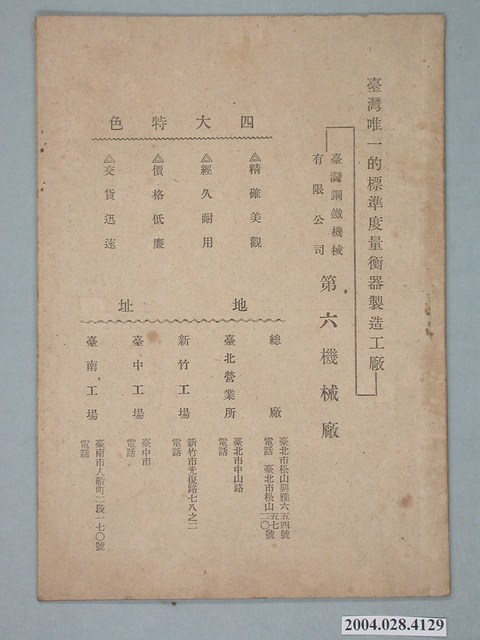 臺灣唯一的標準度量衡器製造工廠
臺灣鋼鐵機械
有限公司
第六機械廠
四大特色
△精確美觀
△經久耐用
△價格低廉
△交貨迅速
地址
總廠
臺北市松山興雅六五四號
電話 臺北市松山
五七
二〇
臺北營業所
臺北市中山路
電話
新竹工場
新竹市光復路七八之二
電話
臺中工場
臺中市
電話
臺南工場
臺南市人船町二段一七〇號
電話
2004.028.4129